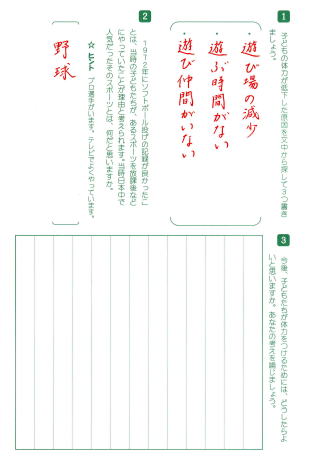 1 子どもの体力が低下した原因を文中から探して3つ書き
ましょう。
・遊び場の減少
・遊ぶ時間がない
・遊び仲間がいない
2 1972年にソフトボール投げの記録が良かったこ
とは、当時の子どもたちが、あるスポーツを放課後など
にやっていたことが理由と考えられます。当時日本中で
人気だったそのスポーツとは、何だと思いますか。
☆ヒント プロ選手がいます。テレビでよくやっています。
野球
3 今後、子どもたちが体力をつけるためには、どうしたらよ
いと思いますか。あなたの考えを論じましょう。